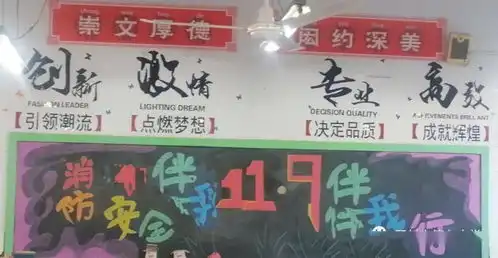 崇文厚德
闳约深美
创新
激情
专业
高效
FASHION LEADER
LIGHTING DREAM
DECISION QUALITY
【引领潮流】
【点燃梦想】
【决定品质】
【成就辉煌】
消防安全
伴我
11.9
伴我
伴我行